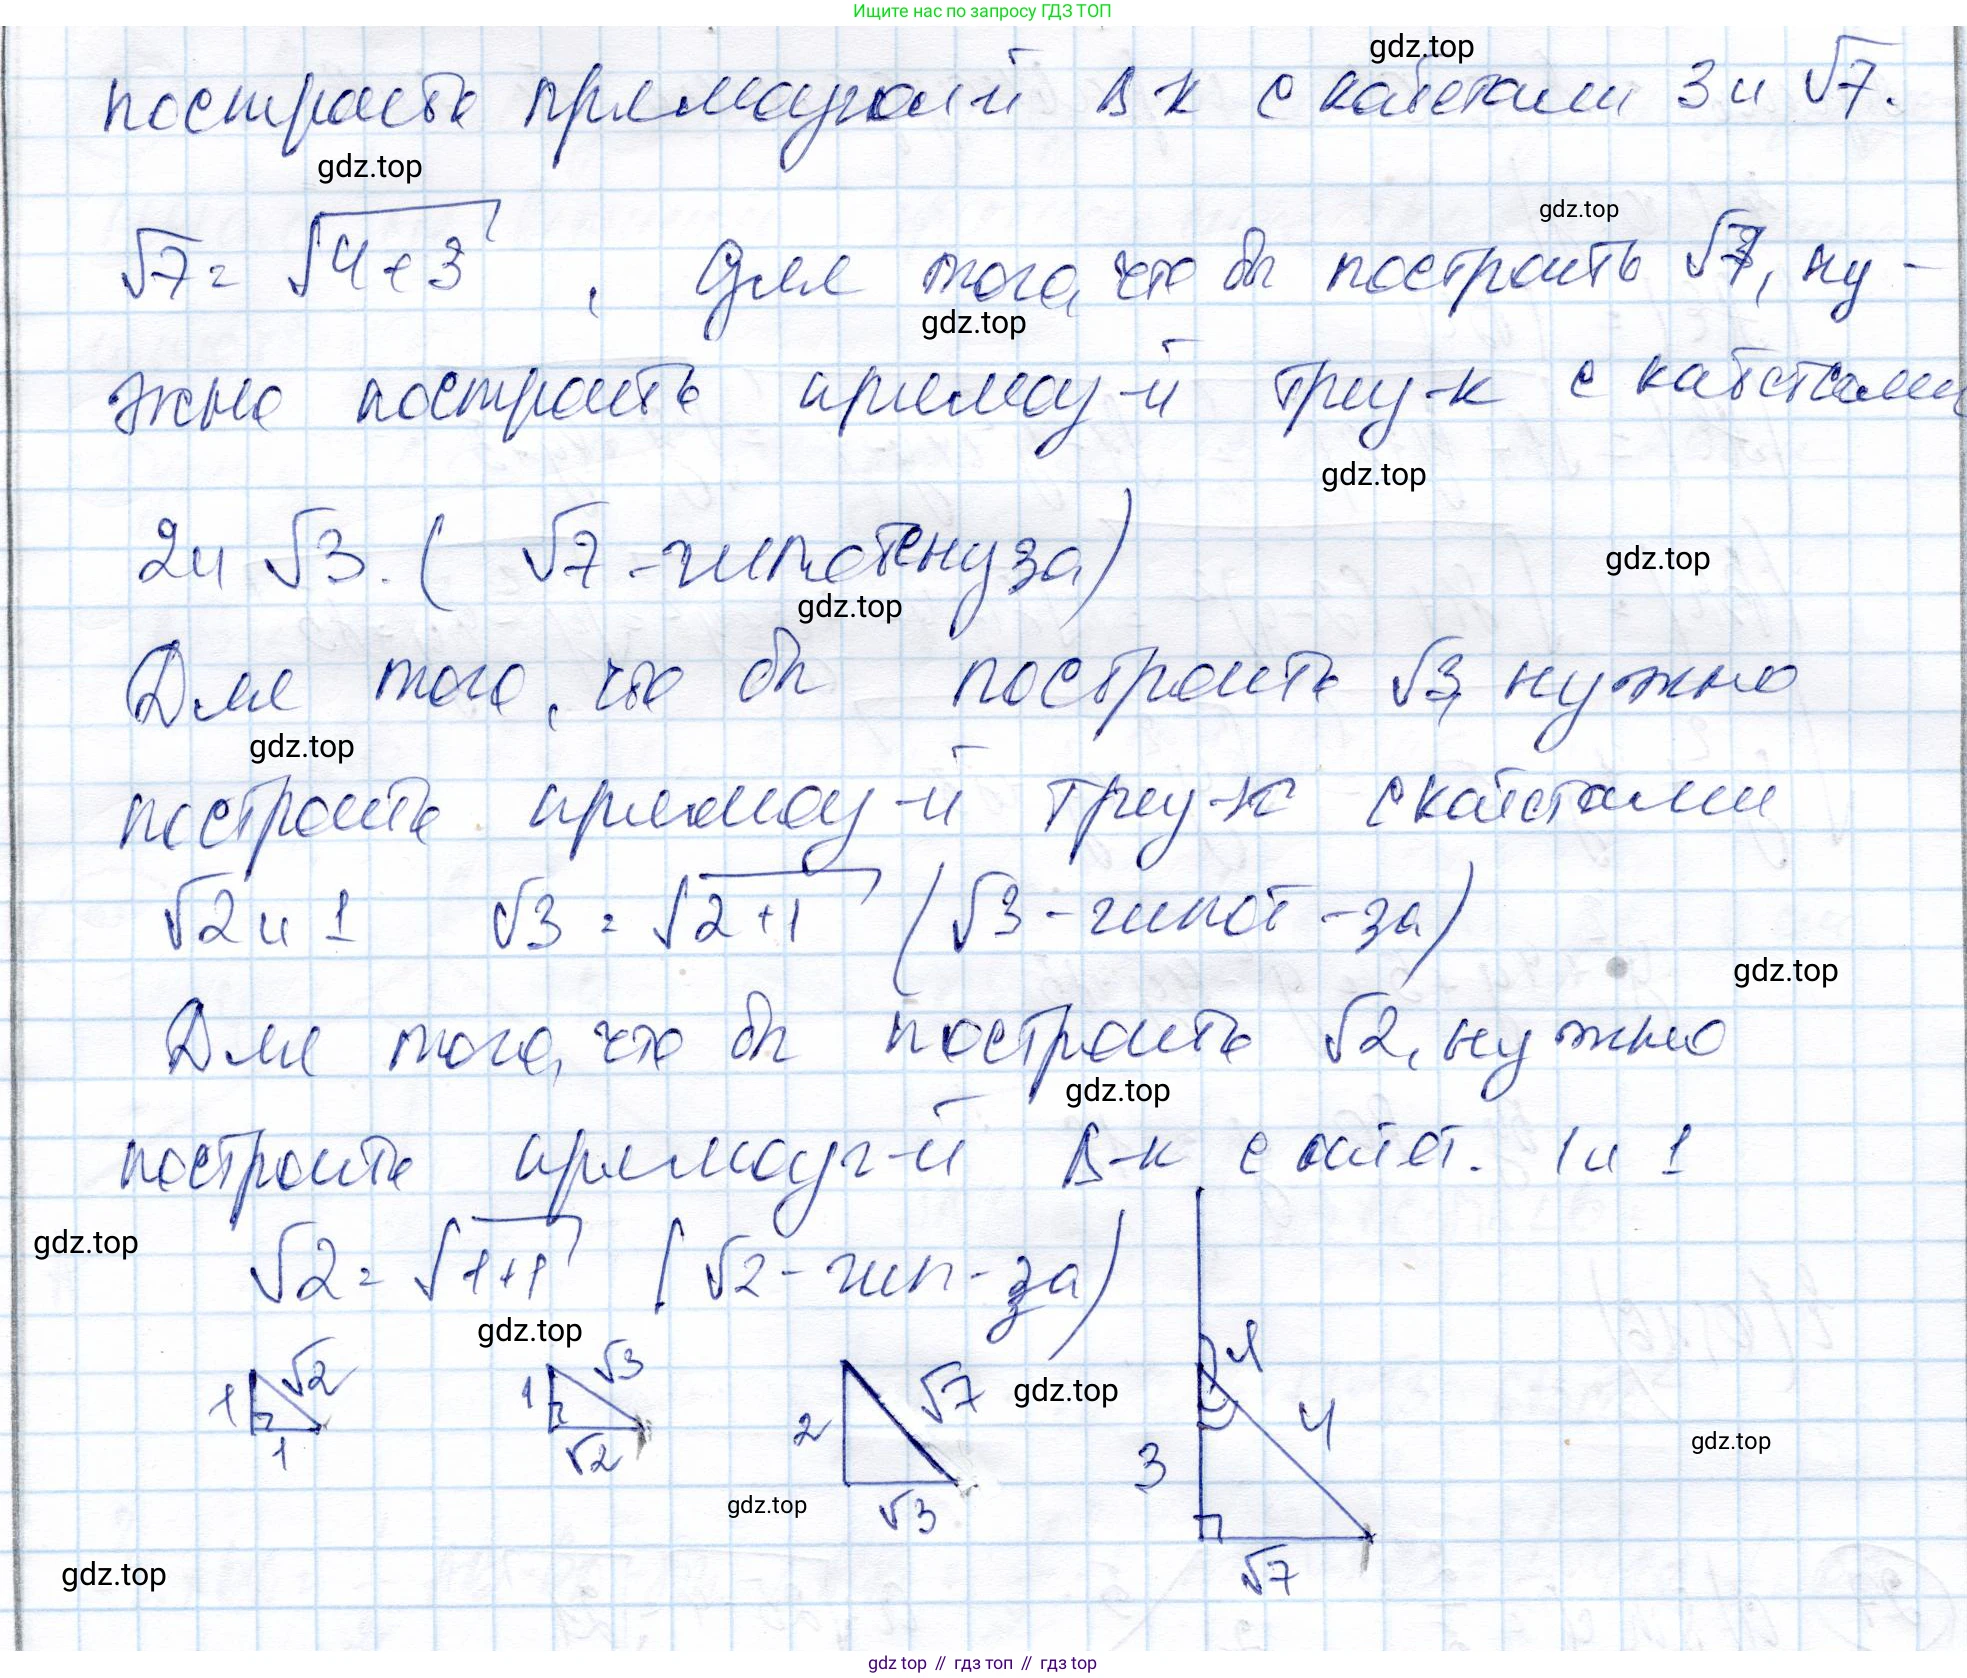 Ищите нас по запросу ГДЗ ТОП
gdz.top
построить прямоугольн-й Δ-к с катетами 3 и √7.
gdz.top
gdz.top
√7 = √4+3 , Для того, что бы построить √7, ну-
gdz.top
жно построить прямоу-й треу-к с катетами
gdz.top
2 и √3. ( √7 - гипотенуза)
gdz.top
gdz.top
Для того, что бы построить √3, нужно
gdz.top
построить прямоу-й треу-к с катетами
√2 и 1 √3 = √2+1 (√3 - гипот-за)
gdz.top
Для того, что бы построить √2, нужно
gdz.top
построить прямоуг-й Δ-к с катет. 1 и 1
gdz.top
√2 = √1+1 (√2 - гип-за)
gdz.top
1 √2 1
1 √3 √2
2 √7 √3
gdz.top
3 4 √7
gdz.top
gdz.top
gdz.top
gdz top // гдз топ // гдз top